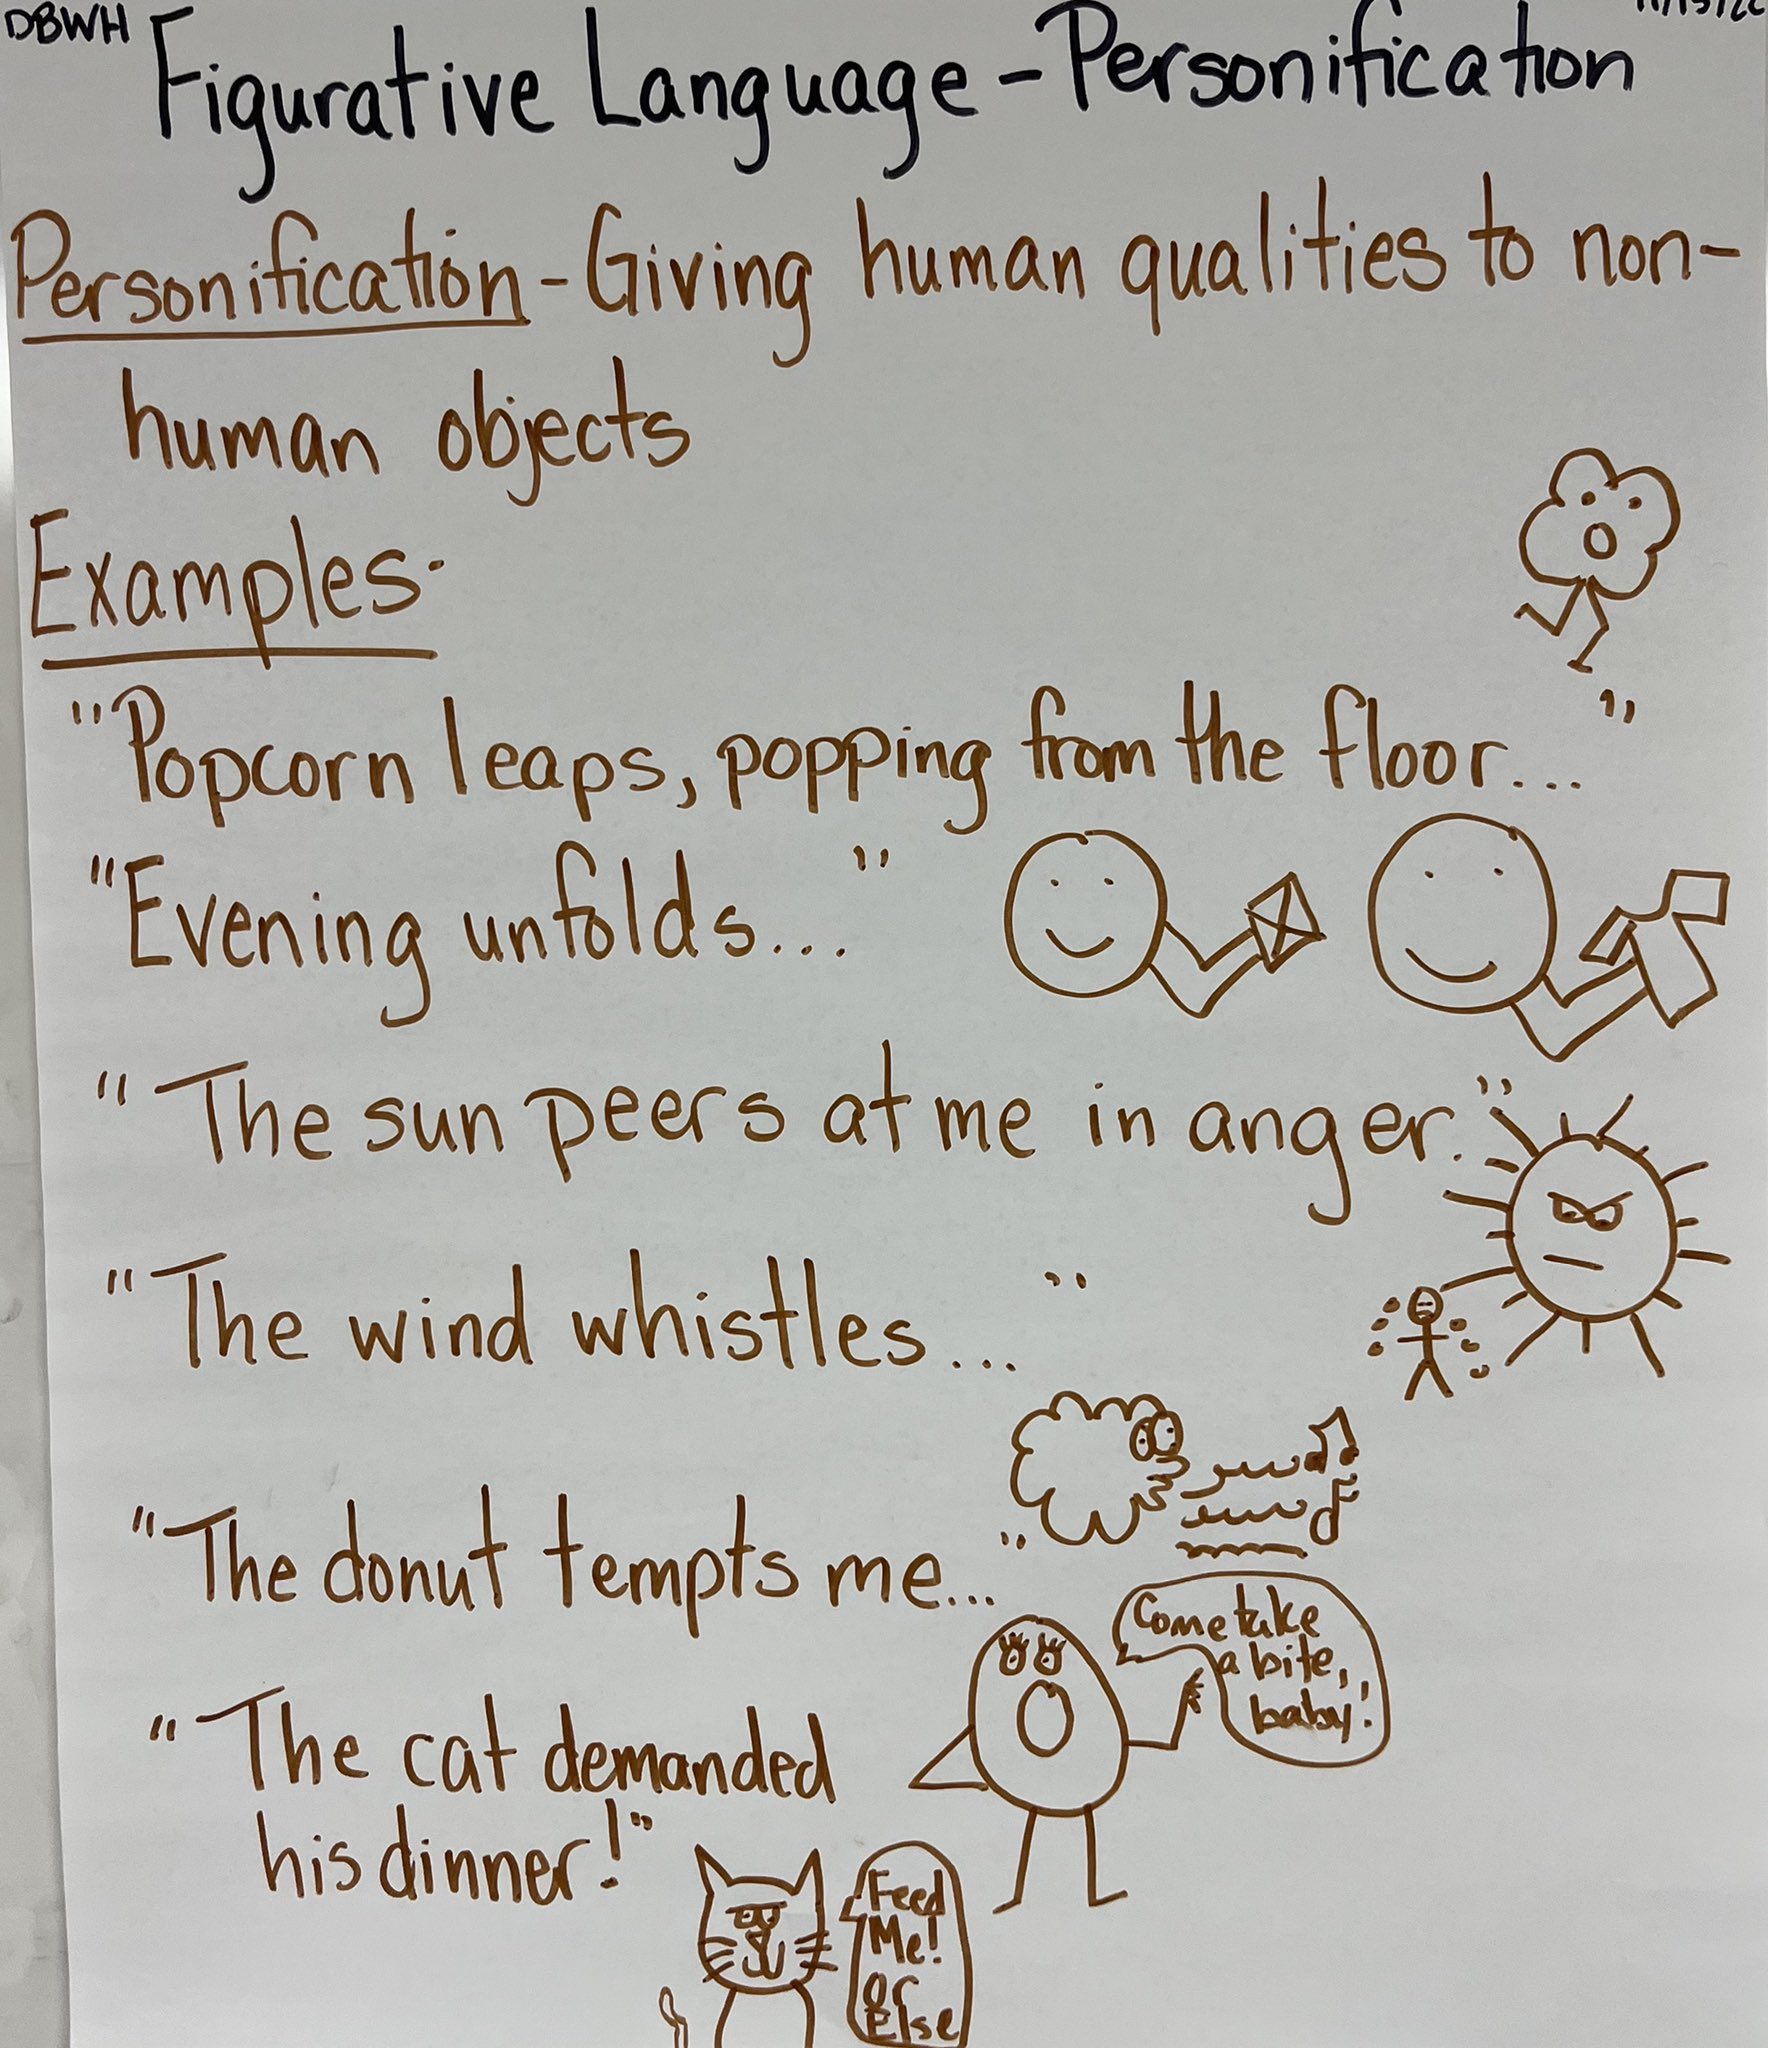 DBWH
Figurative Language - Personification
Personification - Giving human qualities to non-
human objects
Examples-
"Popcorn leaps, popping from the floor..."
"Evening unfolds..."
"The sun peers at me in anger."
"The wind whistles..."
"The donut tempts me..."
Come take
a bite,
baby!
"The cat demanded
his dinner!"
Feed
Me!
or
Else